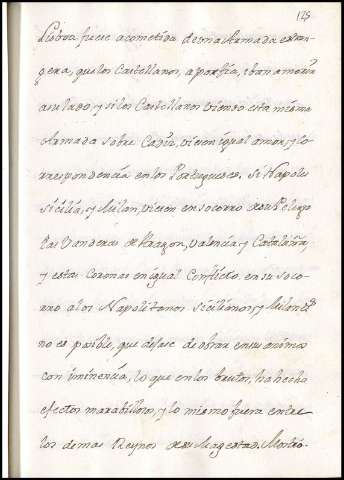 125
Lisboa fuese acometida de una Armada estran-
gera, que los Castellanos, a porfia, iban a morir
a su lado, y si los Castellanos viendo esta misma
Armada sobre Cadiz, viesen igual amor, y lo
rrespondencia en los Portugueses. Si Napoles
Sicilia, y Milan, viesen en socorro de su Peligro
las vanderas de Aragon, Valencia, y Cataluña,
y estas Coronas en igual Conflicto en su soco-
rro a los Napolitanos Sicilianos, y Milaneses
no es posible, que dejase de obrar en sus animos
con iminencia, lo que en los brutos, ha hecho
efectos marabillosos, y lo mismo fuera entre
los demas Reynos de su Magestad. Mostro-